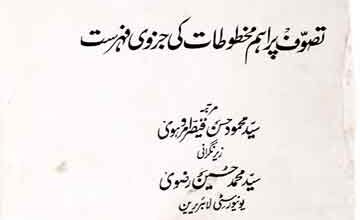 تصوّف پر اہم مخطوطات کی جزوی فہرست
مرتبہ
سیّد محمود حسن قیصر امروہوی
زیر نگرانی
سیّد محمد حسین رضوی
یونیورسٹی لائبریرین